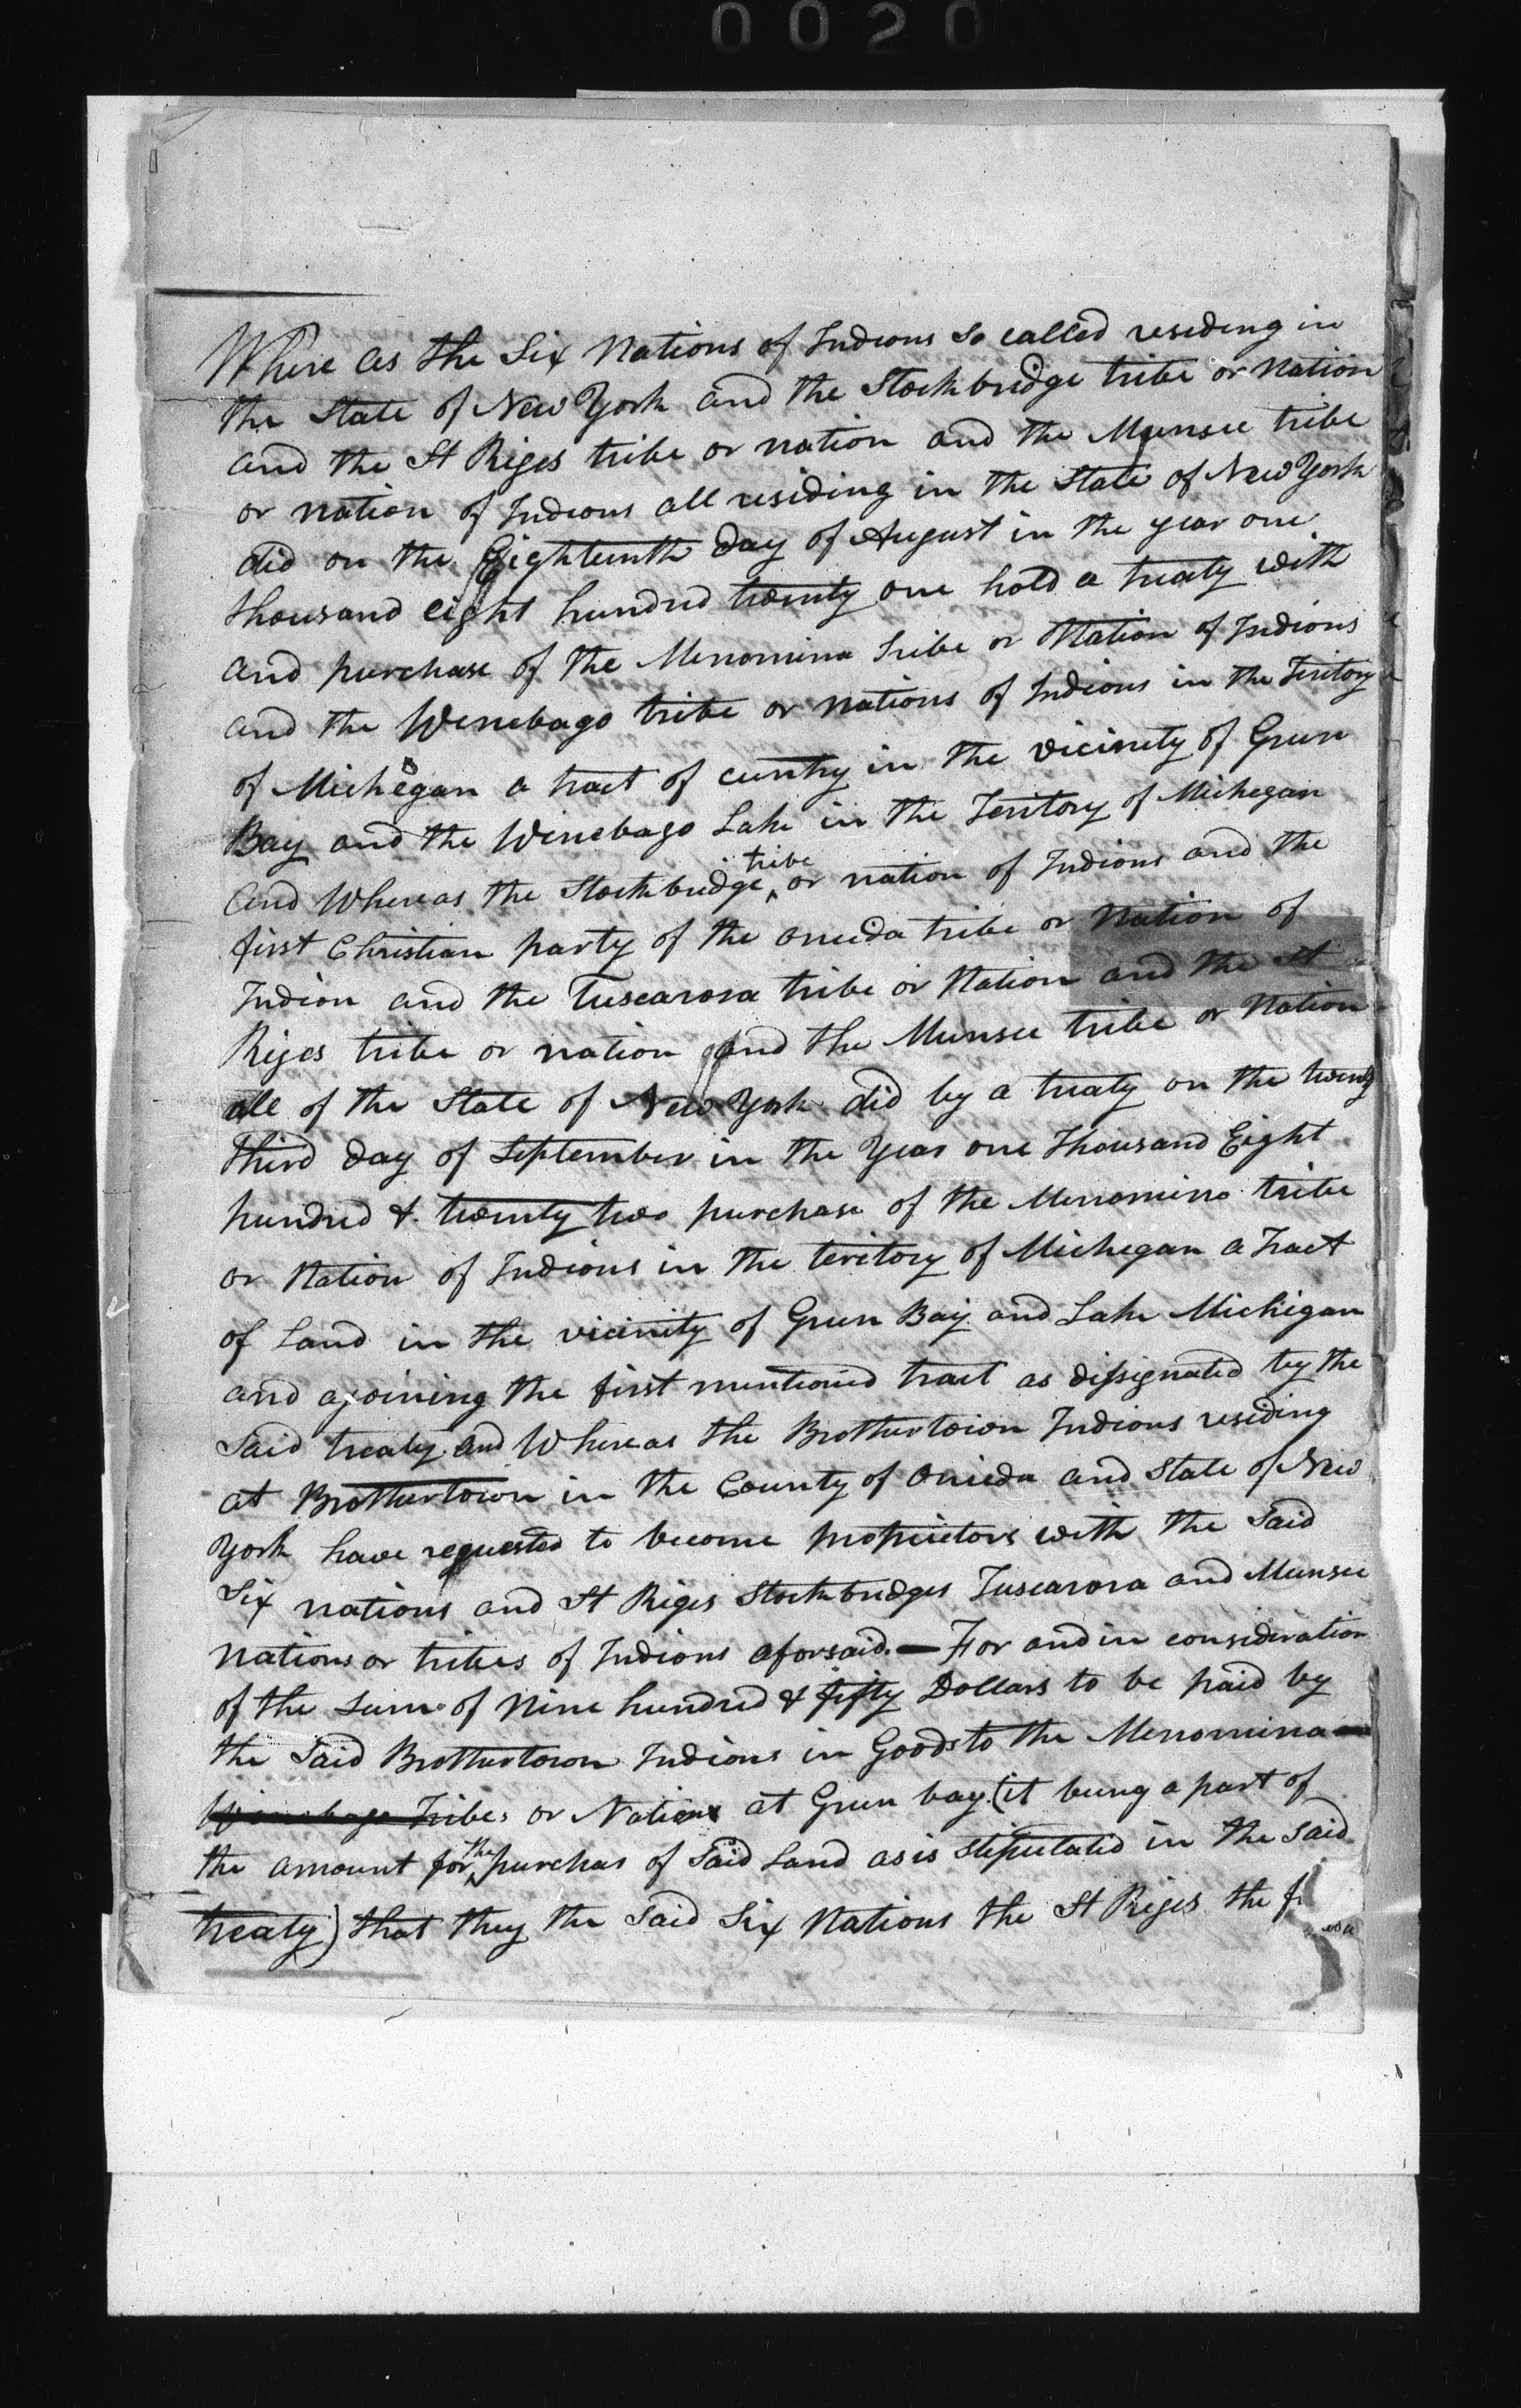 0020
Where as the Six Nations of Indions so called residing in
the State of New York and the Stockbridge tribe or nation
and the St Riges tribe or nation and the Munsee tribe
or nation of Indions all residing in the State of New York
did on the Eighteenth day of August in the year one
thousand eight hundred twenty one hold a treaty with
and purchase of the Menomina Tribe or Nation of Indions
and the Winebago tribe or nations of Indions in the Teritory
of Michegan a tract of cuntry in the vicinety of Green
Bay and the Winebago Lake in the Teritory of Michegan
And Whereas the Stockbridge tribe or nation of Indions and the
first Christian party of the oneida tribe or Nation of
Indion and the Tuscarora tribe or Nation and the St
Riges tribe or nation and the Munsee tribe or Nation
all of the State of New York did by a treaty on the twenty
third day of September in the Year one Thousand Eight
hundred & twenty two purchase of the Menomino tribe
or Nation of Indions in the teritory of Michegan a Tract
of Land in the vicinity of Green Bay and Lake Michigan
and ajoining the first mentioned tract as dissignated by the
Said treaty and Whereas the Brothertown Indions residing
at Brothertown in the County of Oneida and State of New
York have requested to become proprietors with the Said
Six nations and St Riges Stockbridges Tuscarora and Munsee
Nations or tribes of Indions aforsaid.— For and in consideration
of the Sum of Nine hundred & fifty Dollars to be paid by
the Said Brothertown Indions in Goods to the Menomina
Winebago Tribes or Nations at Green bay (it being a part of
the amount for the purchas of Said Land as is stipulated in the said
treaty) that they the Said Six Nations the St Riges the